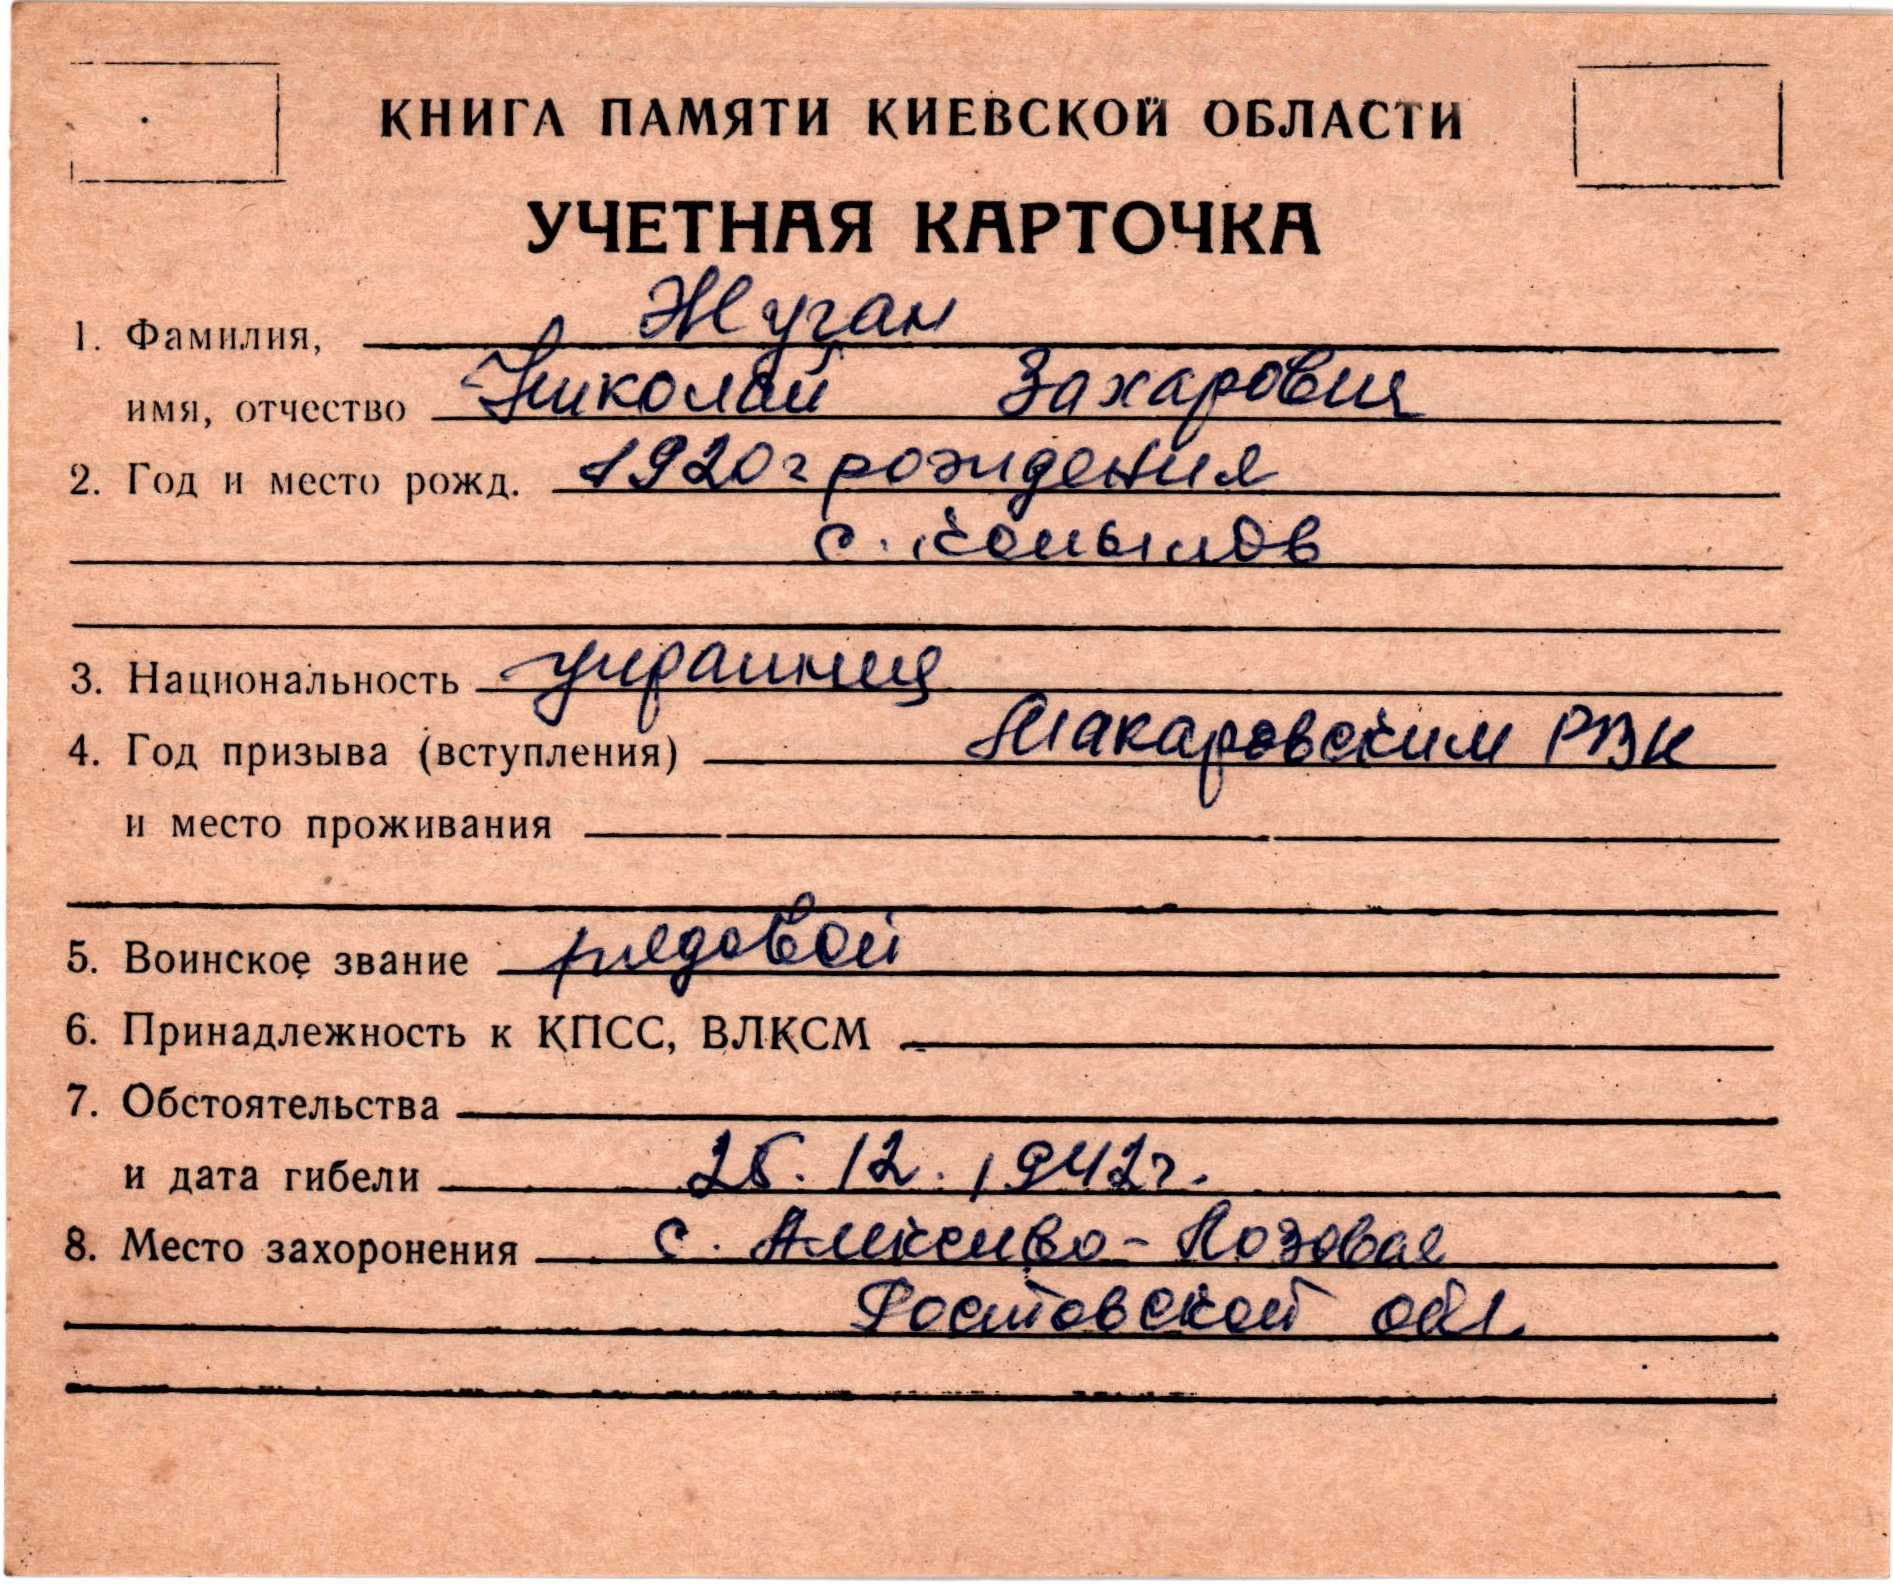 КНИГА ПАМЯТИ КИЕВСКОЙ ОБЛАСТИ
УЧЕТНАЯ КАРТОЧКА
1. Фамилия, Жуган
имя, отчество Николай Захарович
2. Год и место рожд. 1920 г рождения
с. Копылов
3. Национальность украинец
4. Год призыва (вступления) Макаровским РВК
и место проживания
5. Воинское звание рядовой
6. Принадлежность к КПСС, ВЛКСМ
7. Обстоятельства
и дата гибели 25.12.1942г.
8. Место захоронения с. Алексеево-Лозовая
Ростовской обл